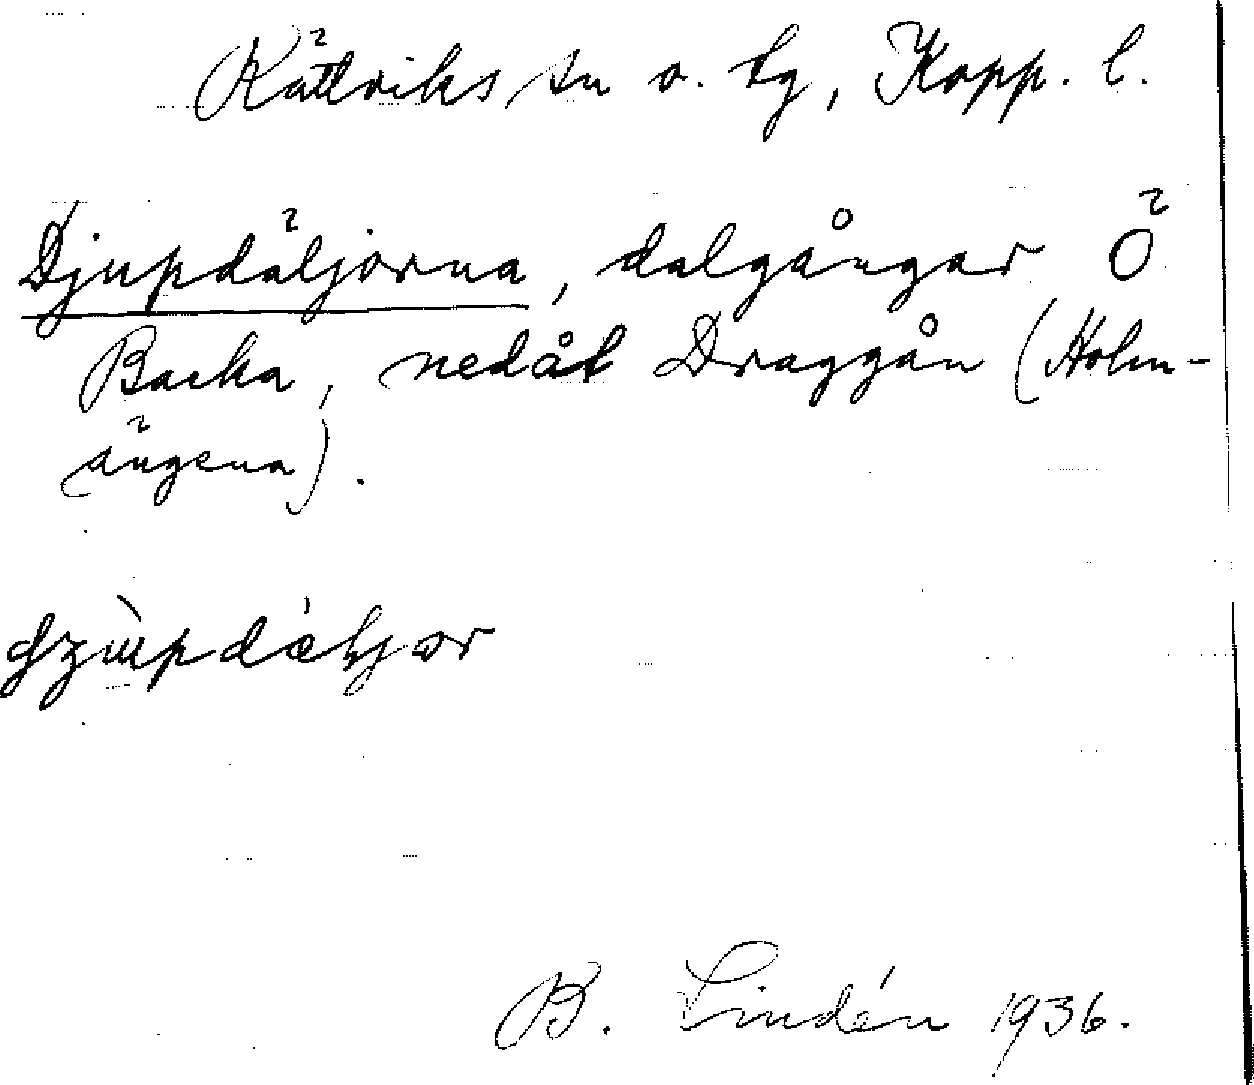 Rättviks sn o. tg, Kopp. l.
Djupdäljorna, dalgångar Ö
Backa, nedåt Draggån (Holm-
ängena).
B. Lindén 1936.